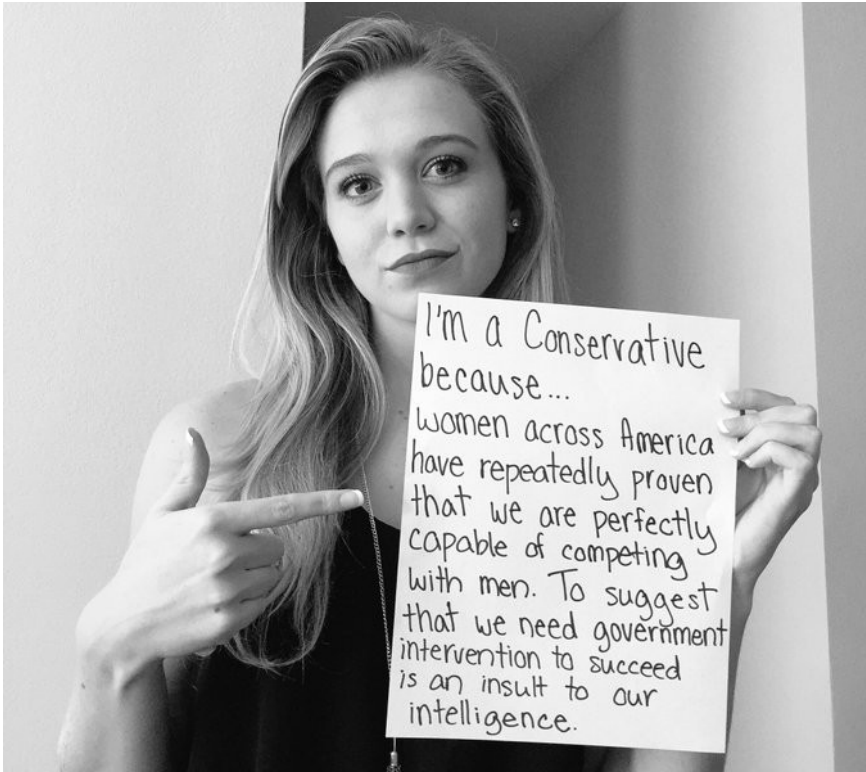 I'm a Conservative
because...
women across America
have repeatedly proven
that we are perfectly
capable of competing
with men. To suggest
that we need government
intervention to succeed
is an insult to our
intelligence.